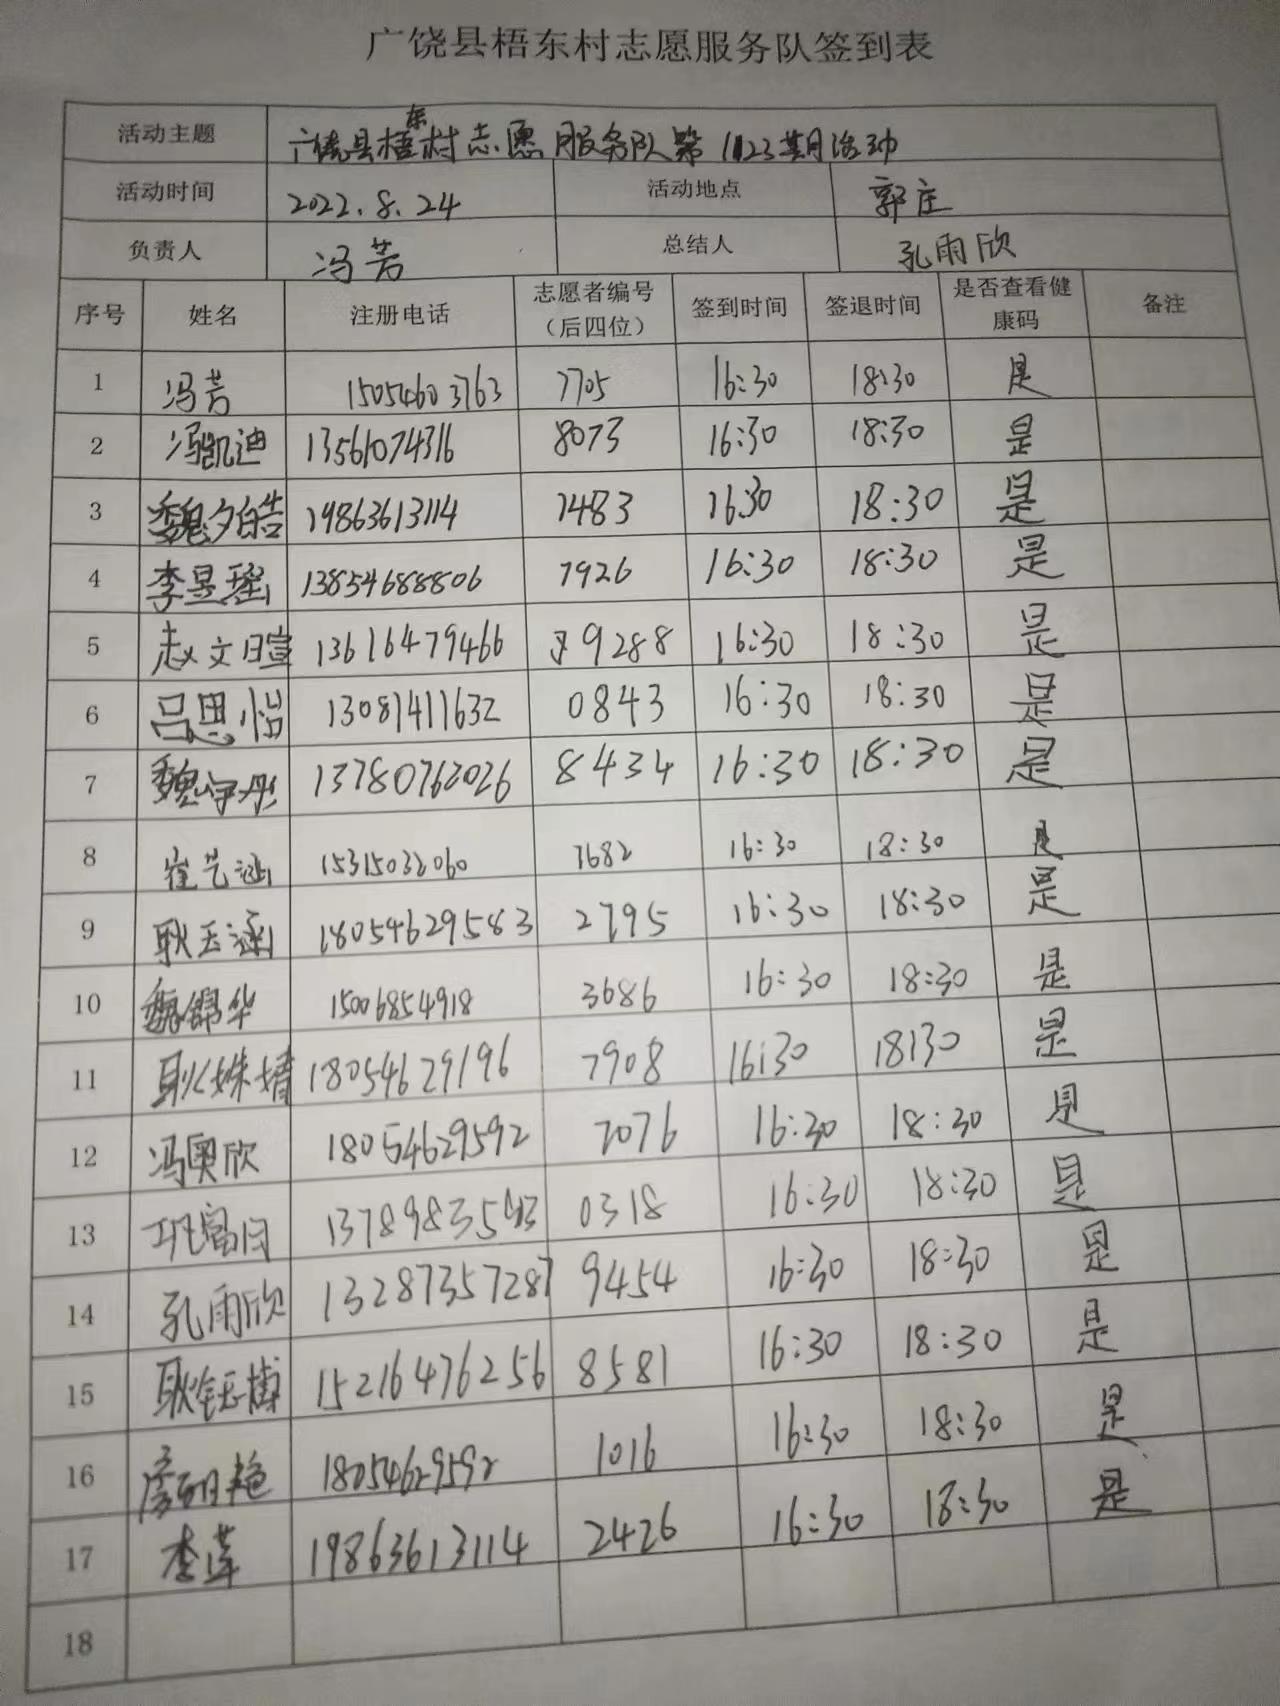 广饶县梧东村志愿服务队签到表
活动主题 广饶县梧东村志愿服务队第1123期活动
活动时间 2022.8.24 活动地点 郭庄
负责人 冯芳 总结人 孔雨欣
序号 姓名 注册电话 志愿者编号（后四位） 签到时间 签退时间 是否查看健康码 备注
1 冯芳 15054603763 7705 16:30 18:30 是
2 冯凯迪 13561074316 8073 16:30 18:30 是
3 魏夕皓 19863613114 7483 16:30 18:30 是
4 李昱瑶 13854688806 7926 16:30 18:30 是
5 赵文暄 13616479466 9288 16:30 18:30 是
6 吕思怡 13081411632 0843 16:30 18:30 是
7 魏宇彤 13780762026 8434 16:30 18:30 是
8 崔艺涵 15315032060 7682 16:30 18:30 是
9 耿玉涵 18054629583 2795 16:30 18:30 是
10 魏锦华 15006854918 3686 16:30 18:30 是
11 耿姝婧 18054629196 7908 16:30 18:30 是
12 冯奥欣 18054629592 7076 16:30 18:30 是
13 巩富月 0318 16:30 18:30 是
14 孔雨欣 13287357287 9454 16:30 18:30 是
15 耿钰博 15216476256 8581 16:30 18:30 是
16 18054629592 1016 16:30 18:30 是
17 李莲 19863613114 2426 16:30 18:30 是
18